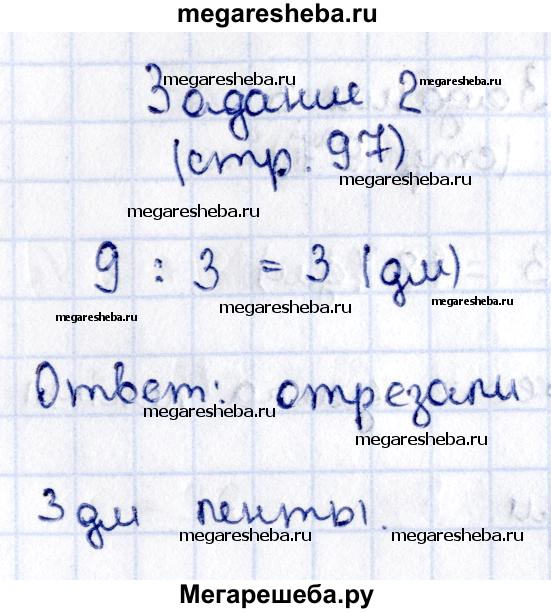 megaresheba.ru
Задание 2
megaresheba.ru megaresheba.ru
(стр. 97)
megaresheba.ru
megaresheba.ru
9 : 3 = 3 (дм)
megaresheba.ru megaresheba.ru megaresheba.ru
Ответ: отрезали
megaresheba.ru megaresheba.ru
3 дм ленты.
megaresheba.ru megaresheba.ru
Мегарешеба.ру